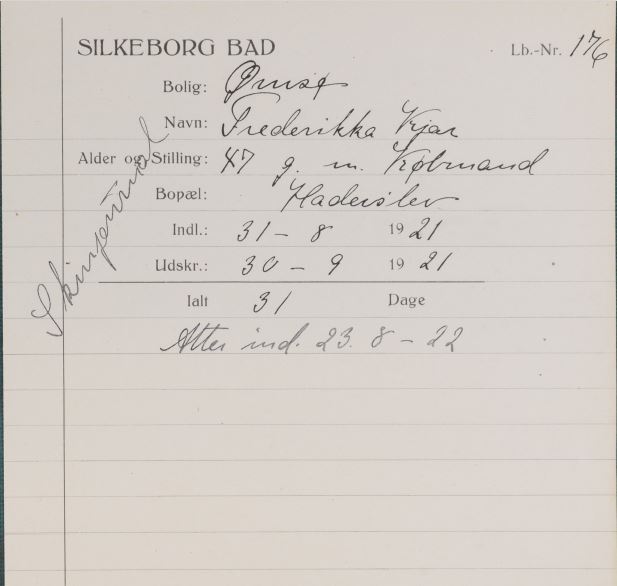 SILKEBORG BAD
Lb.-Nr. 176
Bolig: Ørnsø
Navn: Frederikka Kjær
Alder og Stilling: 47 g. m. Købmand
Bopæl: Haderslev
Indl.: 31 - 8 1921
Udskr.: 30 - 9 1921
Ialt 31 Dage
Atter ind. 23. 8 - 22